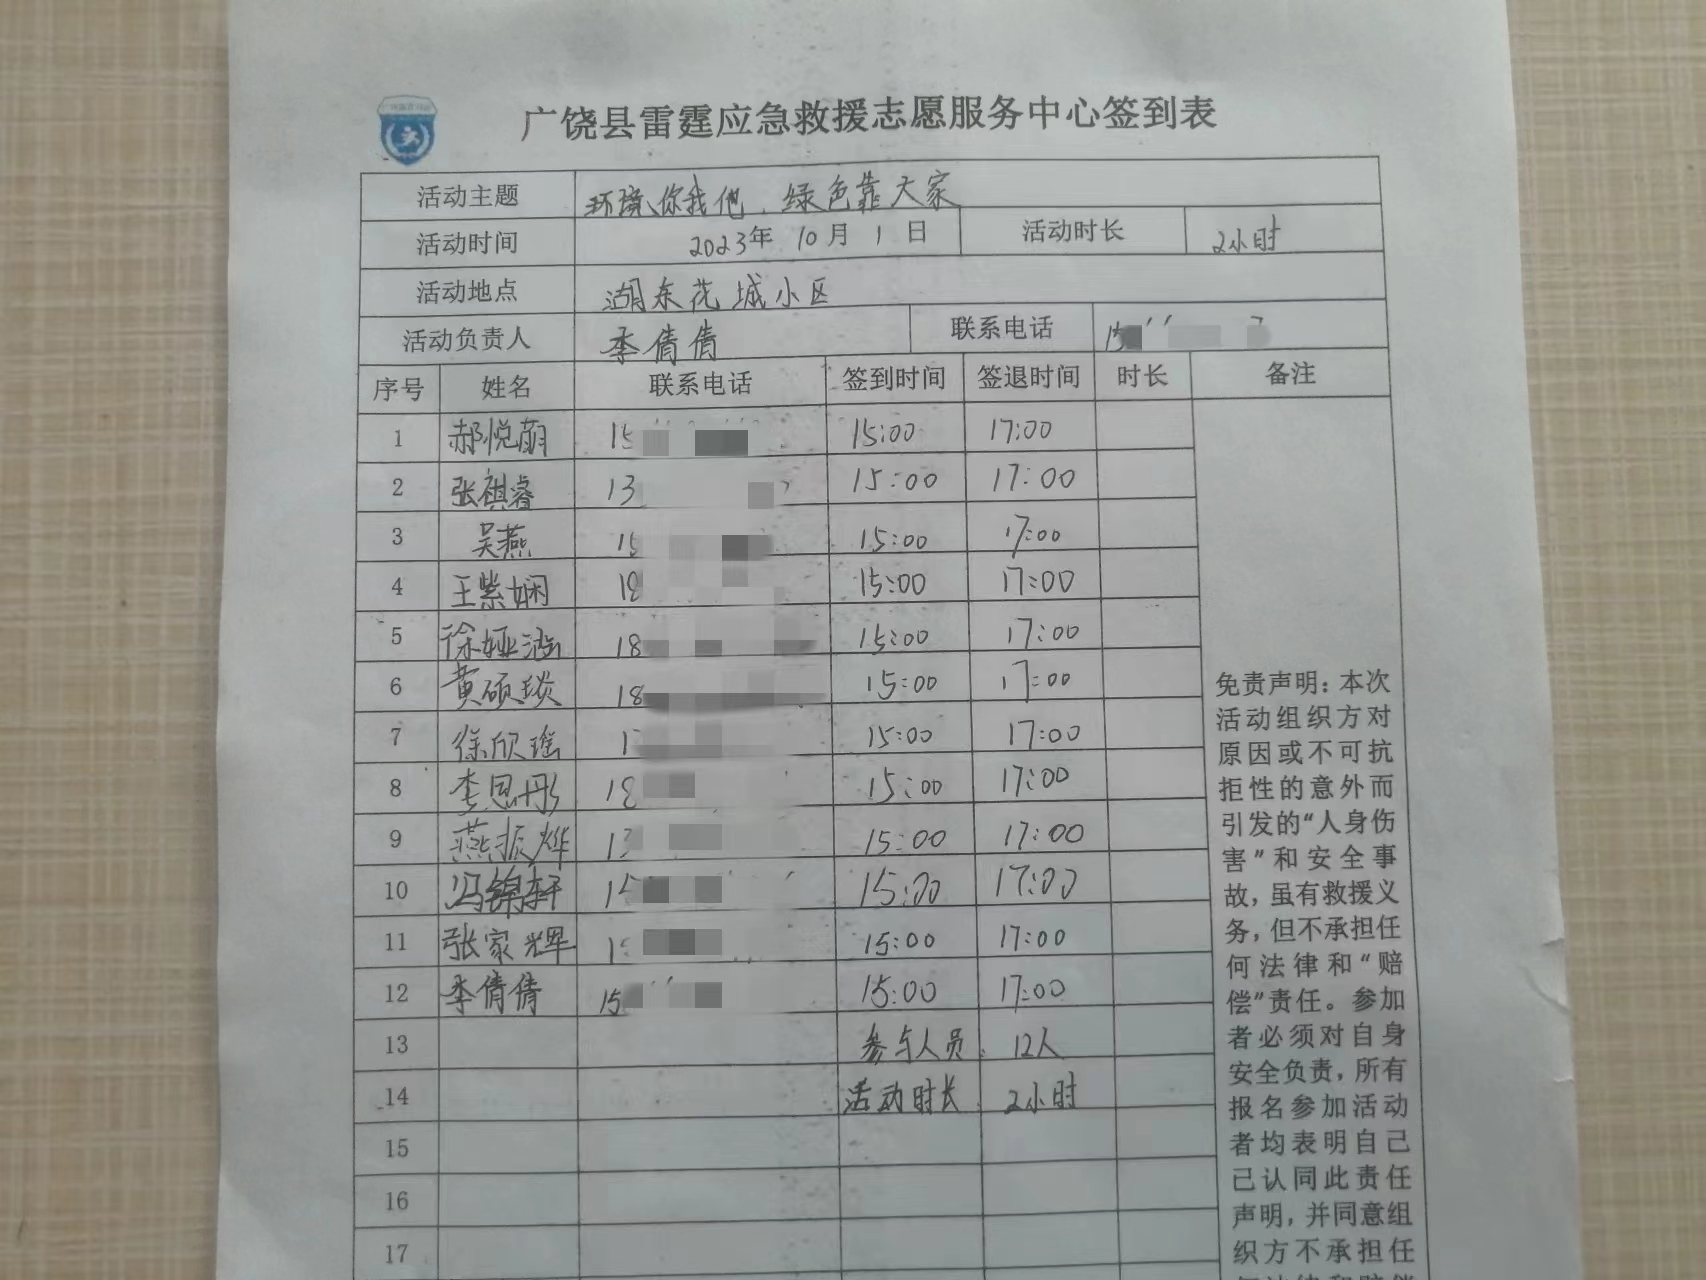 广饶县雷霆应急救援志愿服务中心签到表
活动主题 环境你我他，绿色靠大家
活动时间 2023年 10月 1日 活动时长 2小时
活动地点 湖东花城小区
活动负责人 李倩倩 联系电话 15
序号 姓名 联系电话 签到时间 签退时间 时长 备注
1 郝悦萌 15 15:00 17:00
2 张祺睿 13 15:00 17:00
3 吴燕 15 15:00 17:00
4 王紫娴 18 15:00 17:00
5 徐娅涵 18 15:00 17:00
6 黄硕琰 18 15:00 17:00
7 徐欣瑶 1 15:00 17:00
8 李思彤 18 15:00 17:00
9 燕振烨 13 15:00 17:00
10 冯锦轩 15 15:00 17:00
11 张家辉 15 15:00 17:00
12 李倩倩 15 15:00 17:00
13 参与人员 12人
14 活动时长 2小时
15
16
17
免责声明：本次
活动组织方对
原因或不可抗
拒性的意外而
引发的“人身伤
害”和安全事
故，虽有救援义
务，但不承担任
何法律和“赔
偿”责任。参加
者必须对自身
安全负责，所有
报名参加活动
者均表明自己
已认同此责任
声明，并同意组
织方不承担任
何法律和赔偿